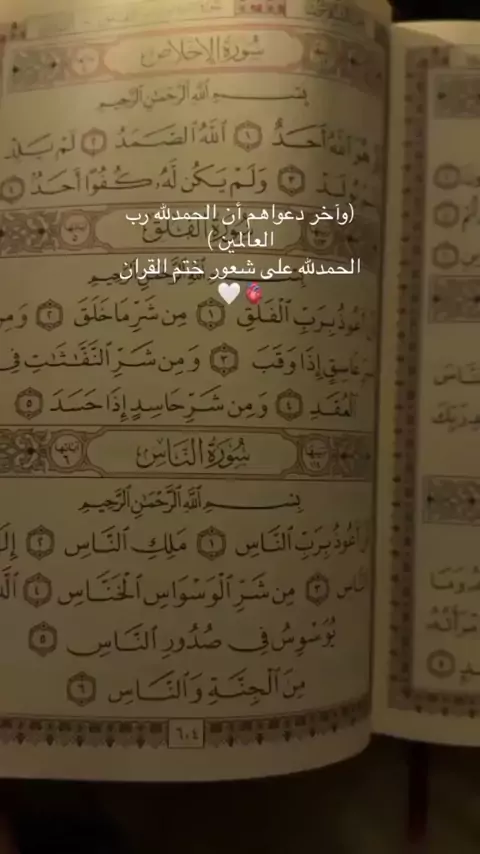 سُورَةُ الإِخْلَاصِ
بِسْمِ اللَّهِ الرَّحْمَٰنِ الرَّحِيمِ
هُوَ اللَّهُ أَحَدٌ ١ اللَّهُ الصَّمَدُ ٢ لَمْ يَلِدْ
يُولَدْ ٣ وَلَمْ يَكُن لَّهُ كُفُوًا أَحَدٌ ٤
(وآخر دعواهم أن الحمدلله رب
العالمين )
سُورَةُ الفَلَقِ
الحمدلله على شعور ختم القران
🤍🫀
أَعُوذُ بِرَبِّ الْفَلَقِ ١ مِن شَرِّ مَا خَلَقَ ٢ وَمِن
غَاسِقٍ إِذَا وَقَبَ ٣ وَمِن شَرِّ النَّفَّاثَاتِ فِي
الْعُقَدِ ٤ وَمِن شَرِّ حَاسِدٍ إِذَا حَسَدَ ٥
سُورَةُ النَّاسِ
بِسْمِ اللَّهِ الرَّحْمَٰنِ الرَّحِيمِ
أَعُوذُ بِرَبِّ النَّاسِ ١ مَلِكِ النَّاسِ ٢
النَّاسِ ٣ مِن شَرِّ الْوَسْوَاسِ الْخَنَّاسِ ٤
يُوَسْوِسُ فِي صُدُورِ النَّاسِ ٥
مِنَ الْجِنَّةِ وَالنَّاسِ ٦
٦٠٤